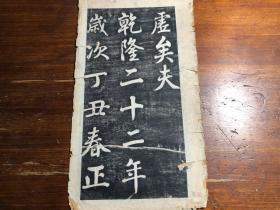 虚矣夫
乾隆二十二年
歲次丁丑春正